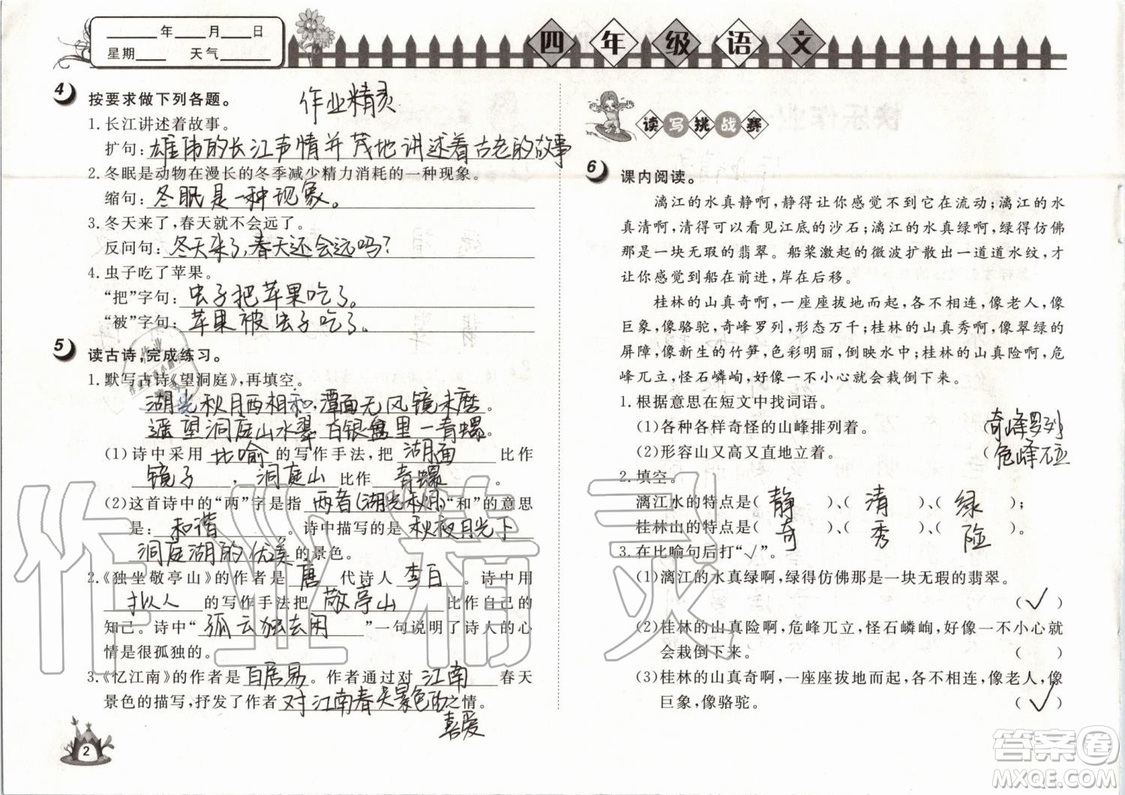 ____年___月___日
星期____ 天气______
四年级语文
4 按要求做下列各题。 作业精灵
1.长江讲述着故事。
扩句：雄伟的长江声情并茂地讲述着古老的故事
2.冬眠是动物在漫长的冬季减少精力消耗的一种现象。
缩句：冬眠是一种现象。
3.冬天来了,春天就不会远了。
反问句：冬天来了,春天还会远吗?
4.虫子吃了苹果。
“把”字句：虫子把苹果吃了。
“被”字句：苹果被虫子吃了。
5 读古诗,完成练习。
1.默写古诗《望洞庭》,再填空。
湖光秋月两相和,潭面无风镜未磨
遥望洞庭山水翠 白银盘里一青螺
(1)诗中采用 比喻 的写作手法,把 湖面 比作
镜子 , 洞庭山 比作 青螺 。
(2)这首诗中的“两”字是指 两者(湖光秋月) “和”的意思
是： 和谐 诗中描写的是 秋夜月光下
洞庭湖的优美 的景色。
2.《独坐敬亭山》的作者是 唐 代诗人 李白 。诗中用
拟人 的写作手法把 敬亭山 比作自己的
知己。诗中“ 孤云独去闲 ”一句说明了诗人的心
情是很孤独的。
3.《忆江南》的作者是 白居易 。作者通过对 江南 春天
景色的描写,抒发了作者 对江南春天景色的 之情。
喜爱
2
读写挑战赛
6 课内阅读。
漓江的水真静啊,静得让你感觉不到它在流动;漓江的水
真清啊,清得可以看见江底的沙石;漓江的水真绿啊,绿得仿佛
那是一块无瑕的翡翠。船桨激起的微波扩散出一道道水纹,才
让你感觉到船在前进,岸在后移。
桂林的山真奇啊,一座座拔地而起,各不相连,像老人,像
巨象,像骆驼,奇峰罗列,形态万千;桂林的山真秀啊,像翠绿的
屏障,像新生的竹笋,色彩明丽,倒映水中;桂林的山真险啊,危
峰兀立,怪石嶙峋,好像一不小心就会栽倒下来。
1.根据意思在短文中找词语。
(1)各种各样奇怪的山峰排列着。 奇峰罗列
(2)形容山又高又直地立着。 危峰兀立
2.填空。
漓江水的特点是( 静 )、( 清 )、( 绿 )。
桂林山的特点是( 奇 )、( 秀 )、( 险 )。
3.在比喻句后打“√”。
(1)漓江的水真绿啊,绿得仿佛那是一块无瑕的翡翠。
( √ )
(2)桂林的山真险啊,危峰兀立,怪石嶙峋,好像一不小心就
会栽倒下来。 ( )
(3)桂林的山真奇啊,一座座拔地而起,各不相连,像老人,像
巨象,像骆驼。 ( √ )
作业精灵
答案圈
MXQE.COM